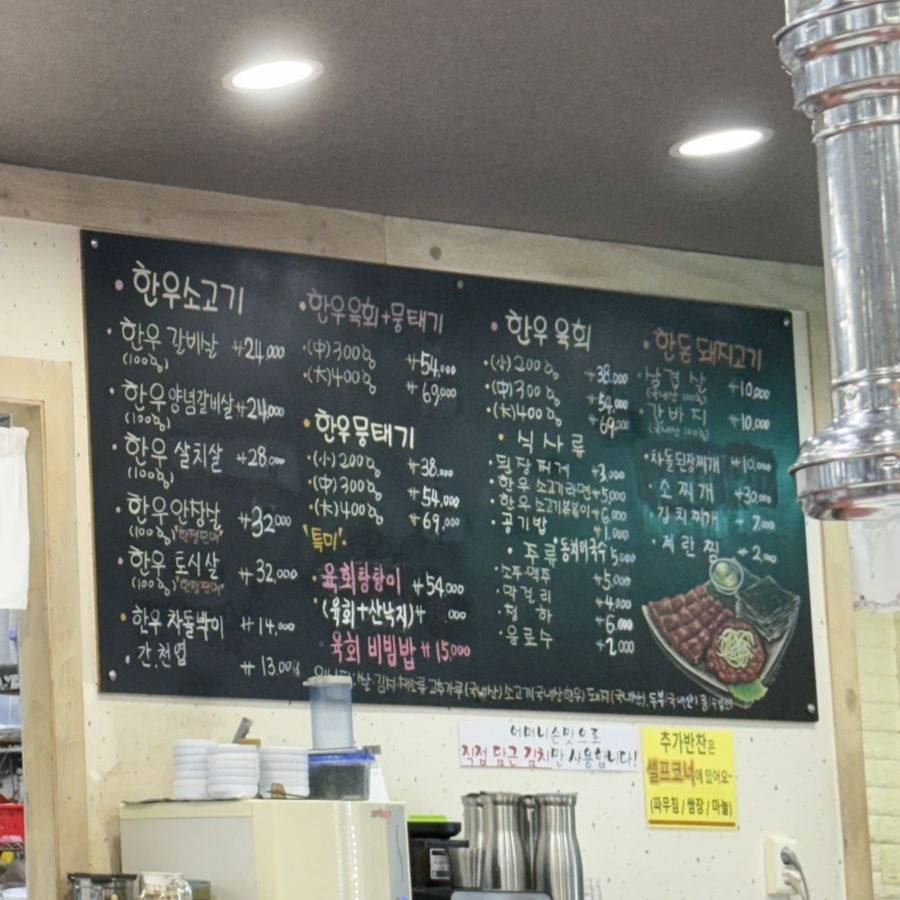 한우소고기
한우 갈비살 ₩24,000
(100g)
한우양념갈비살 ₩24,000
(100g)
한우 살치살 ₩28,000
(100g)
한우안창살 ₩32,000
(100g) "한정판매"
한우 토시살 ₩32,000
(100g) "한정판매"
한우 차돌박이 ₩14,000
간.천엽 ₩13,000
한우육회+뭉태기
(中)300g ₩54,000
(大)400g ₩69,000
한우뭉태기
(小)200g ₩38,000
(中)300g ₩54,000
(大)400g ₩69,000
"특미"
육회탕탕이 ₩54,000
(육회+산낙지) ₩ 000
육회 비빔밥 ₩15,000
한우 육회
(小)200g 38,000
(中)300g ₩54,000
(大)400g ₩69,000
식사류
된장찌개 ₩3,000
한우 소고기라면 ₩5,000
한우 소고기볶음이 ₩6,000
공기밥 ₩1,000
동치미국수 5,000
주류
소주·맥주 ₩5,000
막걸리 ₩4,000
청하 ₩6,000
음료수 ₩2,000
한돈 돼지고기
삼겹살 ₩10,000
(국내산 100g)
갈바지 ₩10,000
(국내산 100g)
차돌된장찌개 ₩10,000
소찌개 ₩30,000
김치찌개 ₩7,000
계란찜 ₩2,000
쌀 김치 채소류 고추가루(국내산) 소고기(국내산한우) 돼지(국내산), 두부(국내산)
어머니손맛으로
직접 담근 김치만 사용합니다!
추가반찬은
셀프코너에 있어요~
(파무침/쌈장/마늘)